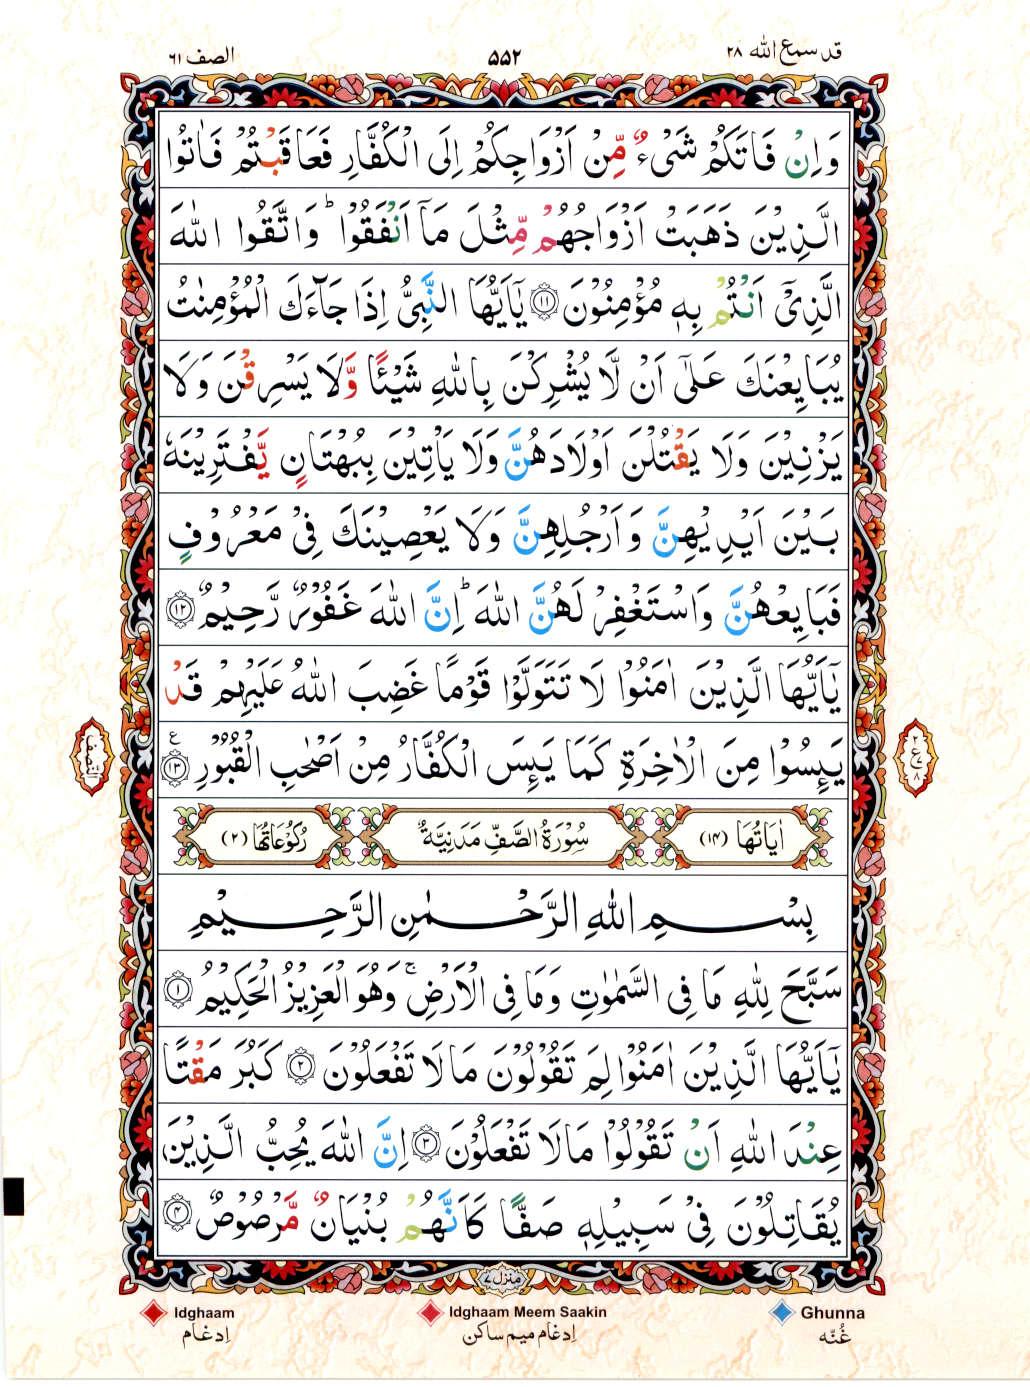 قد سمع الله ٢٨
٥٥٢
الصف ٦١
وَاِنْ فَاتَكُمْ شَیْءٌ مِّنْ اَزْوَاجِكُمْ اِلَی الْكُفَّارِ فَعَاقَبْتُمْ فَاٰتُوا
الَّذِیْنَ ذَهَبَتْ اَزْوَاجُهُمْ مِّثْلَ مَاۤ اَنْفَقُوْا ؕ وَاتَّقُوا اللّٰهَ
الَّذِیْۤ اَنْتُمْ بِهٖ مُؤْمِنُوْنَ ۝١١ یٰۤاَیُّهَا النَّبِیُّ اِذَا جَآءَكَ الْمُؤْمِنٰتُ
یُبَایِعْنَكَ عَلٰۤی اَنْ لَّا یُشْرِكْنَ بِاللّٰهِ شَیْئًا وَّلَا یَسْرِقْنَ وَلَا
یَزْنِیْنَ وَلَا یَقْتُلْنَ اَوْلَادَهُنَّ وَلَا یَاْتِیْنَ بِبُهْتَانٍ یَّفْتَرِیْنَهٗ
بَیْنَ اَیْدِیْهِنَّ وَاَرْجُلِهِنَّ وَلَا یَعْصِیْنَكَ فِیْ مَعْرُوْفٍ
فَبَایِعْهُنَّ وَاسْتَغْفِرْ لَهُنَّ اللّٰهَ ؕ اِنَّ اللّٰهَ غَفُوْرٌ رَّحِیْمٌ ۝١٢
یٰۤاَیُّهَا الَّذِیْنَ اٰمَنُوْا لَا تَتَوَلَّوْا قَوْمًا غَضِبَ اللّٰهُ عَلَیْهِمْ قَدْ
یَىِٕسُوْا مِنَ الْاٰخِرَةِ كَمَا یَىِٕسَ الْكُفَّارُ مِنْ اَصْحٰبِ الْقُبُوْرِ ۝١٣ ع
٢ ع ٧ ٨
النّصف
اٰیَاتُهَا (١٤)
سُوْرَةُ الصَّفِّ مَدَنِیَّةٌ
رُكُوْعَاتُهَا (٢)
بِسْمِ اللّٰهِ الرَّحْمٰنِ الرَّحِیْمِ
سَبَّحَ لِلّٰهِ مَا فِی السَّمٰوٰتِ وَمَا فِی الْاَرْضِ ۚ وَهُوَ الْعَزِیْزُ الْحَكِیْمُ ۝١
یٰۤاَیُّهَا الَّذِیْنَ اٰمَنُوْا لِمَ تَقُوْلُوْنَ مَا لَا تَفْعَلُوْنَ ۝٢ كَبُرَ مَقْتًا
عِنْدَ اللّٰهِ اَنْ تَقُوْلُوْا مَا لَا تَفْعَلُوْنَ ۝٣ اِنَّ اللّٰهَ یُحِبُّ الَّذِیْنَ
یُقَاتِلُوْنَ فِیْ سَبِیْلِهٖ صَفًّا كَاَنَّهُمْ بُنْیَانٌ مَّرْصُوْصٌ ۝٤
منزل ٧
Idghaam
اِدغَام
Idghaam Meem Saakin
اِدغَام میم ساکن
Ghunna
غُنّه